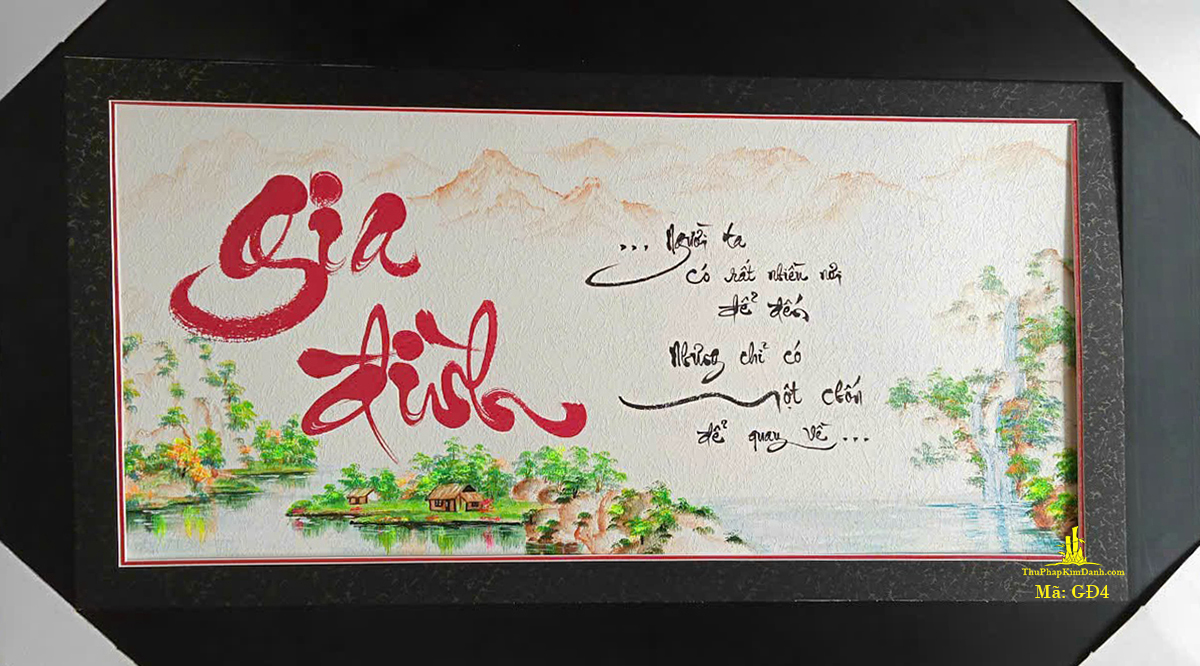 gia
đình
... Người ta
có rất nhiều nơi
để đến
Nhưng chỉ có
một chốn
để quay về ...
ThuPhapKimDanh.com
Mã: GĐ4